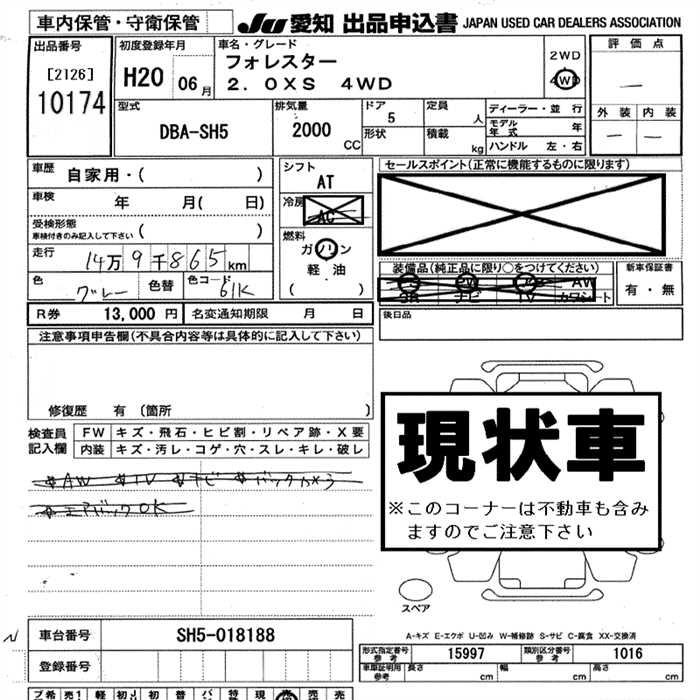 車内保管・守衛保管
JU 愛知 出品申込書 JAPAN USED CAR DEALERS ASSOCIATION
出品番号
[2126]
10174
初度登録年月
H20 06月
車名・グレード
フォレスター
2.0XS 4WD
2WD
4WD
評価点
—
外装 内装
— —
型式
DBA-SH5
排気量
2000
CC
ドア
5
形状
定員
人
積載
kg
ディーラー・並行
モデル年式 年
ハンドル 左・右
車歴 自家用・( )
車検 年 月( 日)
受検形態
車検付きのみ記入して下さい ( )
走行 14万9千865km
色 グレー 色替 色コード 61K
シフト
AT
冷房
AC
燃料
ガソリン
軽油
( )
セールスポイント(正常に機能するものに限ります)
装備品(純正品に限り○をつけてください)
PS PW エアB AW
SR ナビ TV カワシート
新車保証書
有・無
R券 13,000円 名変通知期限 月 日
後日品
注意事項申告欄(不具合内容等は具体的に記入して下さい)
修復歴 有(箇所 )
検査員記入欄
FW キズ・飛石・ヒビ割・リペア跡・X要
内装 キズ・汚レ・コゲ・穴・スレ・キレ・破レ
AW TV ナビ バックカメラ
エアバックOK
現状車
※このコーナーは不動車も含み
ますのでご注意下さい
スペア
A-キズ E-エクボ U-凹み W-補修跡 S-サビ C-腐食 XX-交換済
車台番号 SH5-018188
登録番号
形式指定番号 参考 15997 類別区分番号 参考 1016
車庫証明用 参考 長さ cm 幅 cm 高さ cm